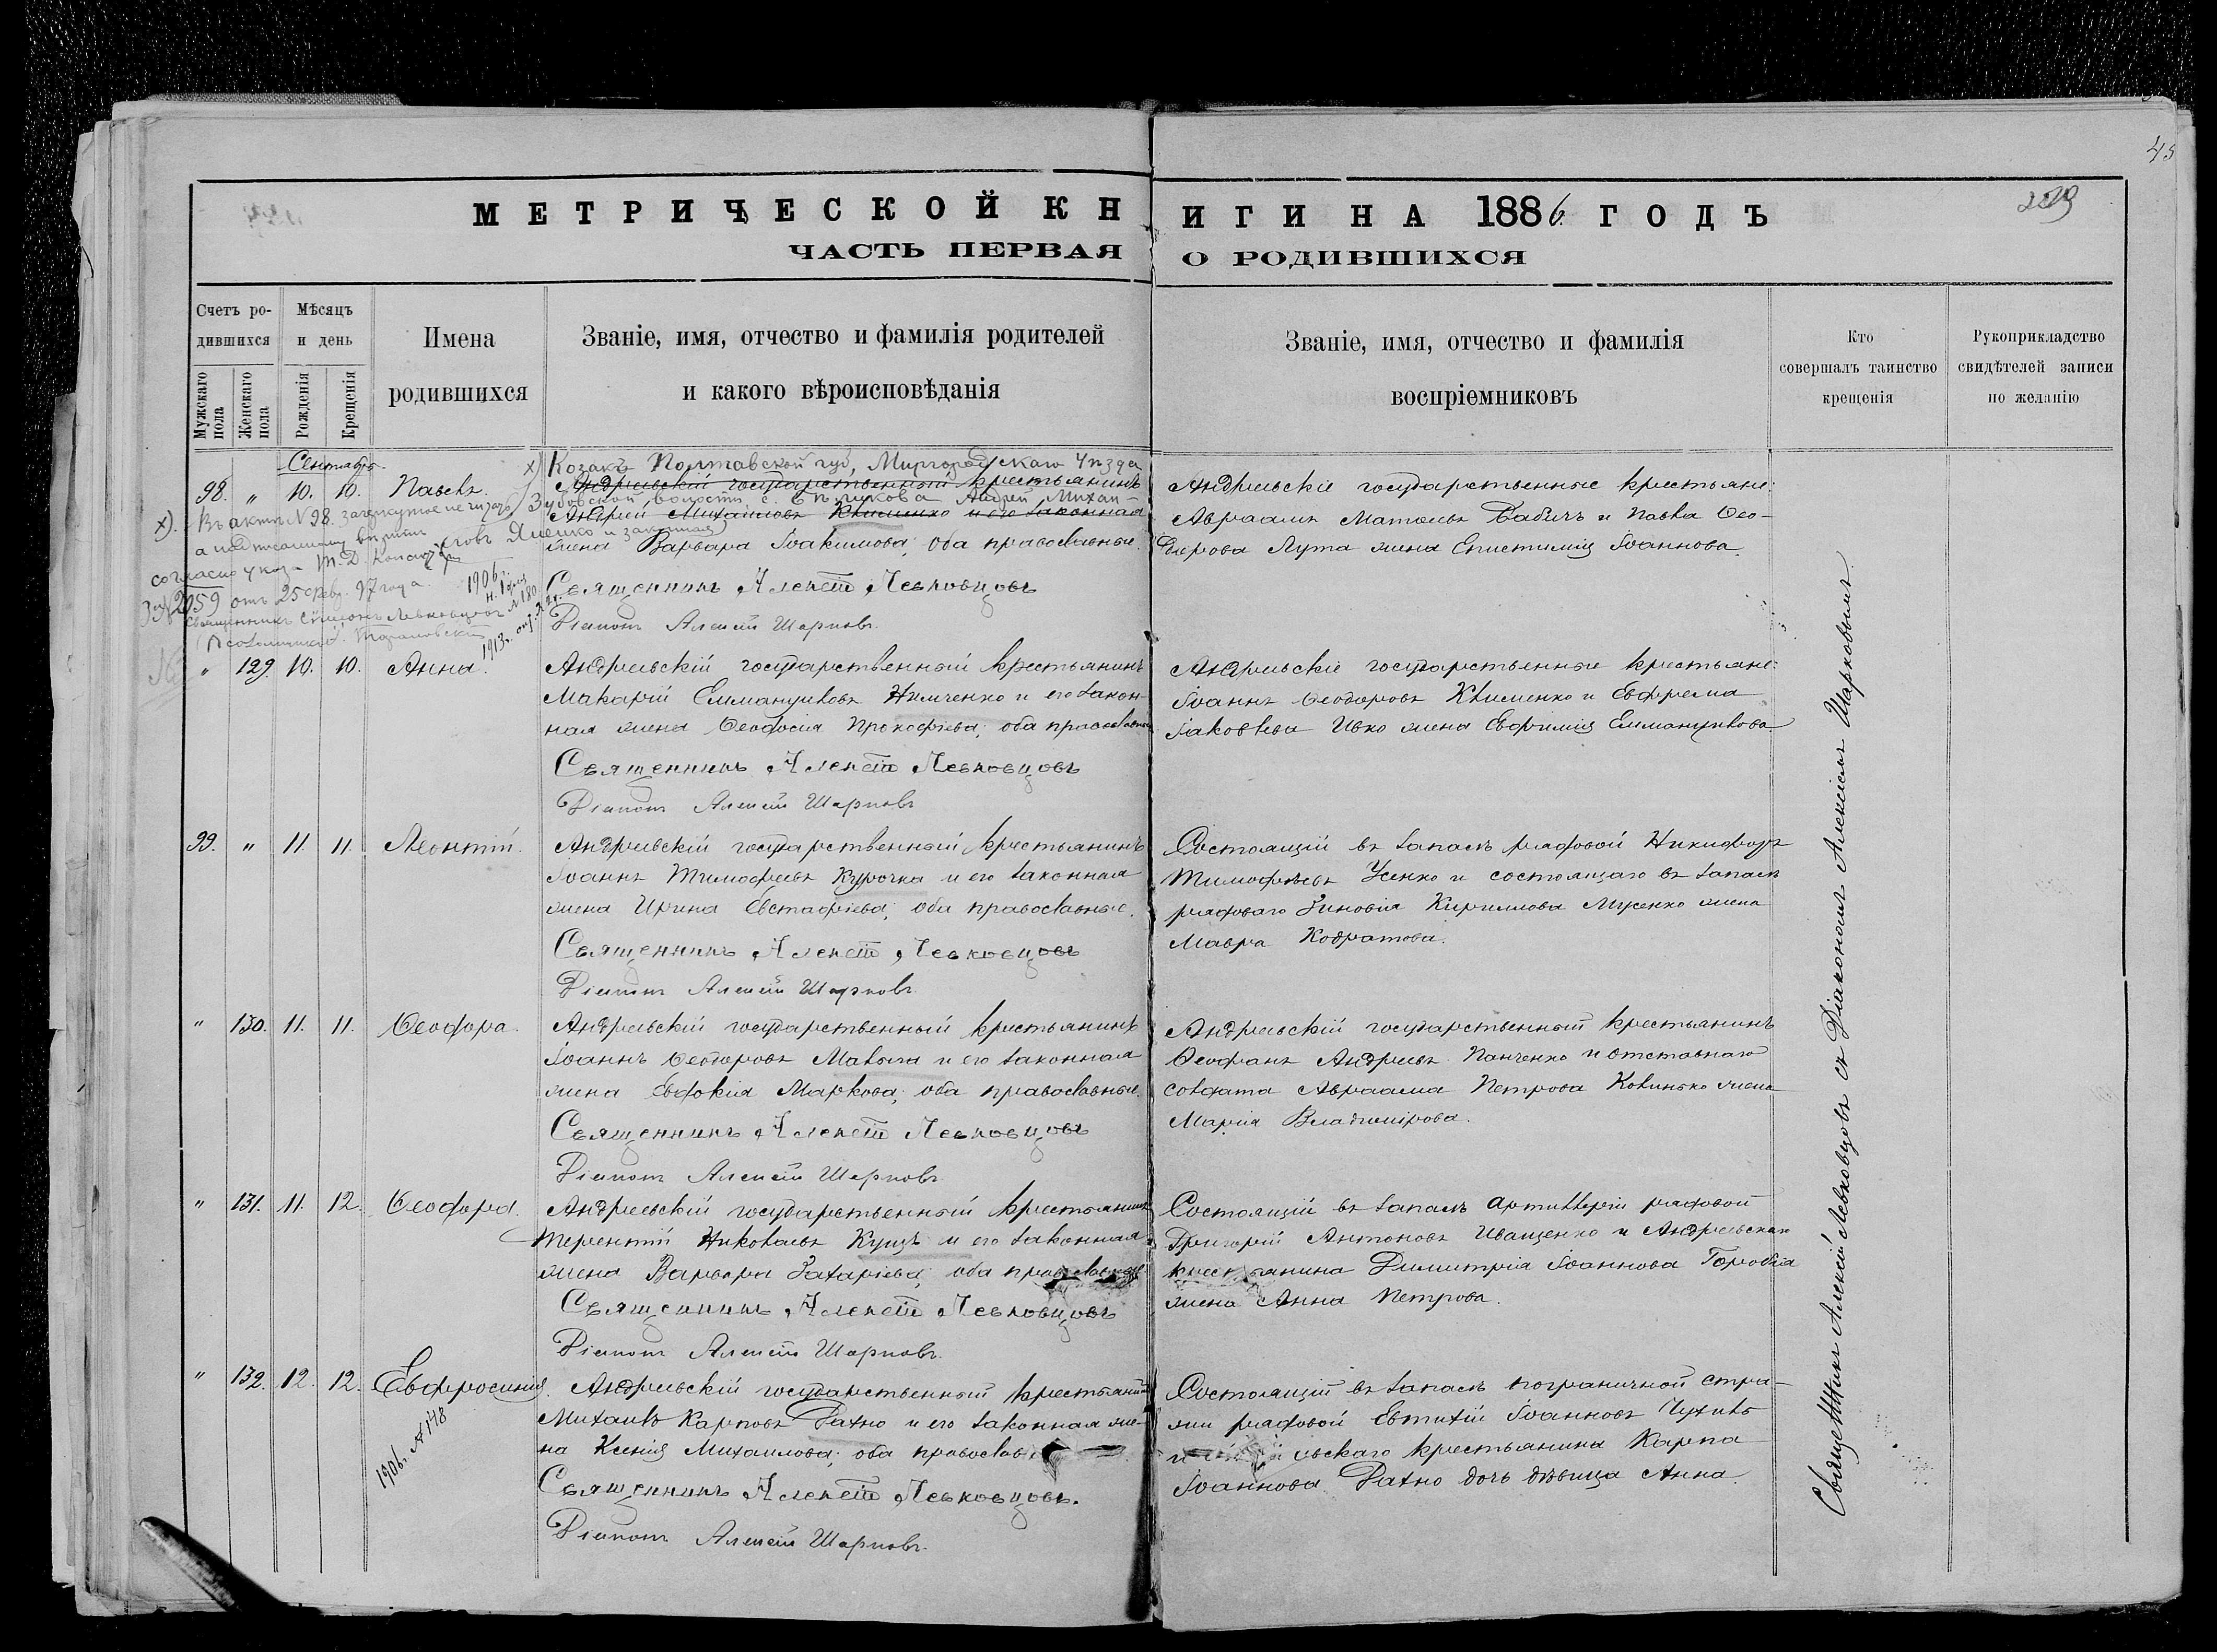 45
229
МЕТРИЧЕСКОЙ КНИГИ НА 1886. ГОДЪ
ЧАСТЬ ПЕРВАЯ О РОДИВШИХСЯ
Счетъ ро-
дившихся
Мужскаго пола
Женскаго пола
Мѣсяцъ
и день
Рожденія
Крещенія
Имена
родившихся
Званіе, имя, отчество и фамилія родителей
и какого вѣроисповѣданія
Званіе, имя, отчество и фамилія
воспріемниковъ
Кто
совершалъ таинство
крещенія
Рукоприкладство
свидѣтелей записи
по желанію
Сентябрь
98. " 10. 10. Павелъ.
х) Козакъ Полтавской губ, Миргородскаго уѣзда
Андреевскій государственный крестьянинъ
Зубовской волости с. Андрей Михаи-
Андрей Михайловъ Клименко и его законная
ловъ Яценко и законная
жена Варвара Іоакимова; оба православные.
Священникъ Алексѣй Левковцовъ
Діаконъ Алексѣй Шарковъ.
Андреевскіе государственные крестьяне:
Авраамъ Матѳеевъ Бабичъ и Павла Ѳео-
дорова Лута жена Епистимія Іоаннова.
х). Въ актѣ № 98. зачеркнутое не читать,
а надписанному вѣрить
согласно указа П. Д. Консисторіи
за № 2059 отъ 25 февр. 97 года.
Священникъ Симеонъ Левковцовъ
Псаломщикъ
1906 г.
1913 г.
" 129. 10. 10. Анна.
Андреевскій государственный крестьянинъ
Макарій Еммануиловъ Нимченко и его закон-
ная жена Ѳеодосія Прокофіева; оба православные
Священникъ Алексѣй Левковцовъ
Діаконъ Алексѣй Шарковъ
Андреевскіе государственные крестьяне:
Іоаннъ Ѳеодоровъ Клименко и Евфрема
Іаковлева Ивко жена Евфимія Еммануилова.
99. " 11. 11. Леонтій.
Андреевскій государственный крестьянинъ
Іоаннъ Тимофеевъ Курочка и его законная
жена Ирина Евстафіева; оба православные.
Священникъ Алексѣй Левковцовъ
Діаконъ Алексѣй Шарковъ
Состоящій въ запасѣ рядовой Никифоръ
Тимофѣевъ Усенко и состоящаго въ запасѣ
рядоваго Зиновія Кириллова Мусенко жена
Мавра Кодратова.
" 130. 11. 11. Ѳеодора.
Андреевскій государственный крестьянинъ
Іоаннъ Ѳеодоровъ и его законная
жена Евдокія Маркова; оба православные.
Священникъ Алексѣй Левковцовъ
Діаконъ Алексѣй Шарковъ
Андреевскій государственный крестьянинъ
Ѳеофанъ Андреевъ Панченко и отставнаго
солдата Авраама Петрова Ковинько жена
Марія Владимірова.
" 131. 11. 12. Ѳеодора.
Андреевскій государственный крестьянинъ
Терентій Николаевъ Куцъ и его законная
жена Варвара Захаріева; оба православные
Священникъ Алексѣй Левковцовъ
Діаконъ Алексѣй Шарковъ.
Состоящій въ запасѣ артиллеріи рядовой
Григорій Антоновъ Иващенко и Андреевскаго
крестьянина Димитрія Іоаннова Горобца
жена Анна Петрова.
" 132. 12. 12. Евфросинія.
1906 г. № 148
Андреевскій государственный крестьянинъ
Михаилъ Карповъ Рахно и его законная же-
на Ксенія Михаилова; оба православ
Священникъ Алексѣй Левковцовъ.
Діаконъ Алексѣй Шарковъ.
Состоящій въ запасѣ пограничной стра-
жи рядовой Евтихій Іоанновъ Чухилъ
и крестьянина Карпа
Іоаннова Рахно дочь дѣвица Анна.
Священникъ Алексій Левковцовъ съ Діакономъ Алексіемъ Шарковымъ.